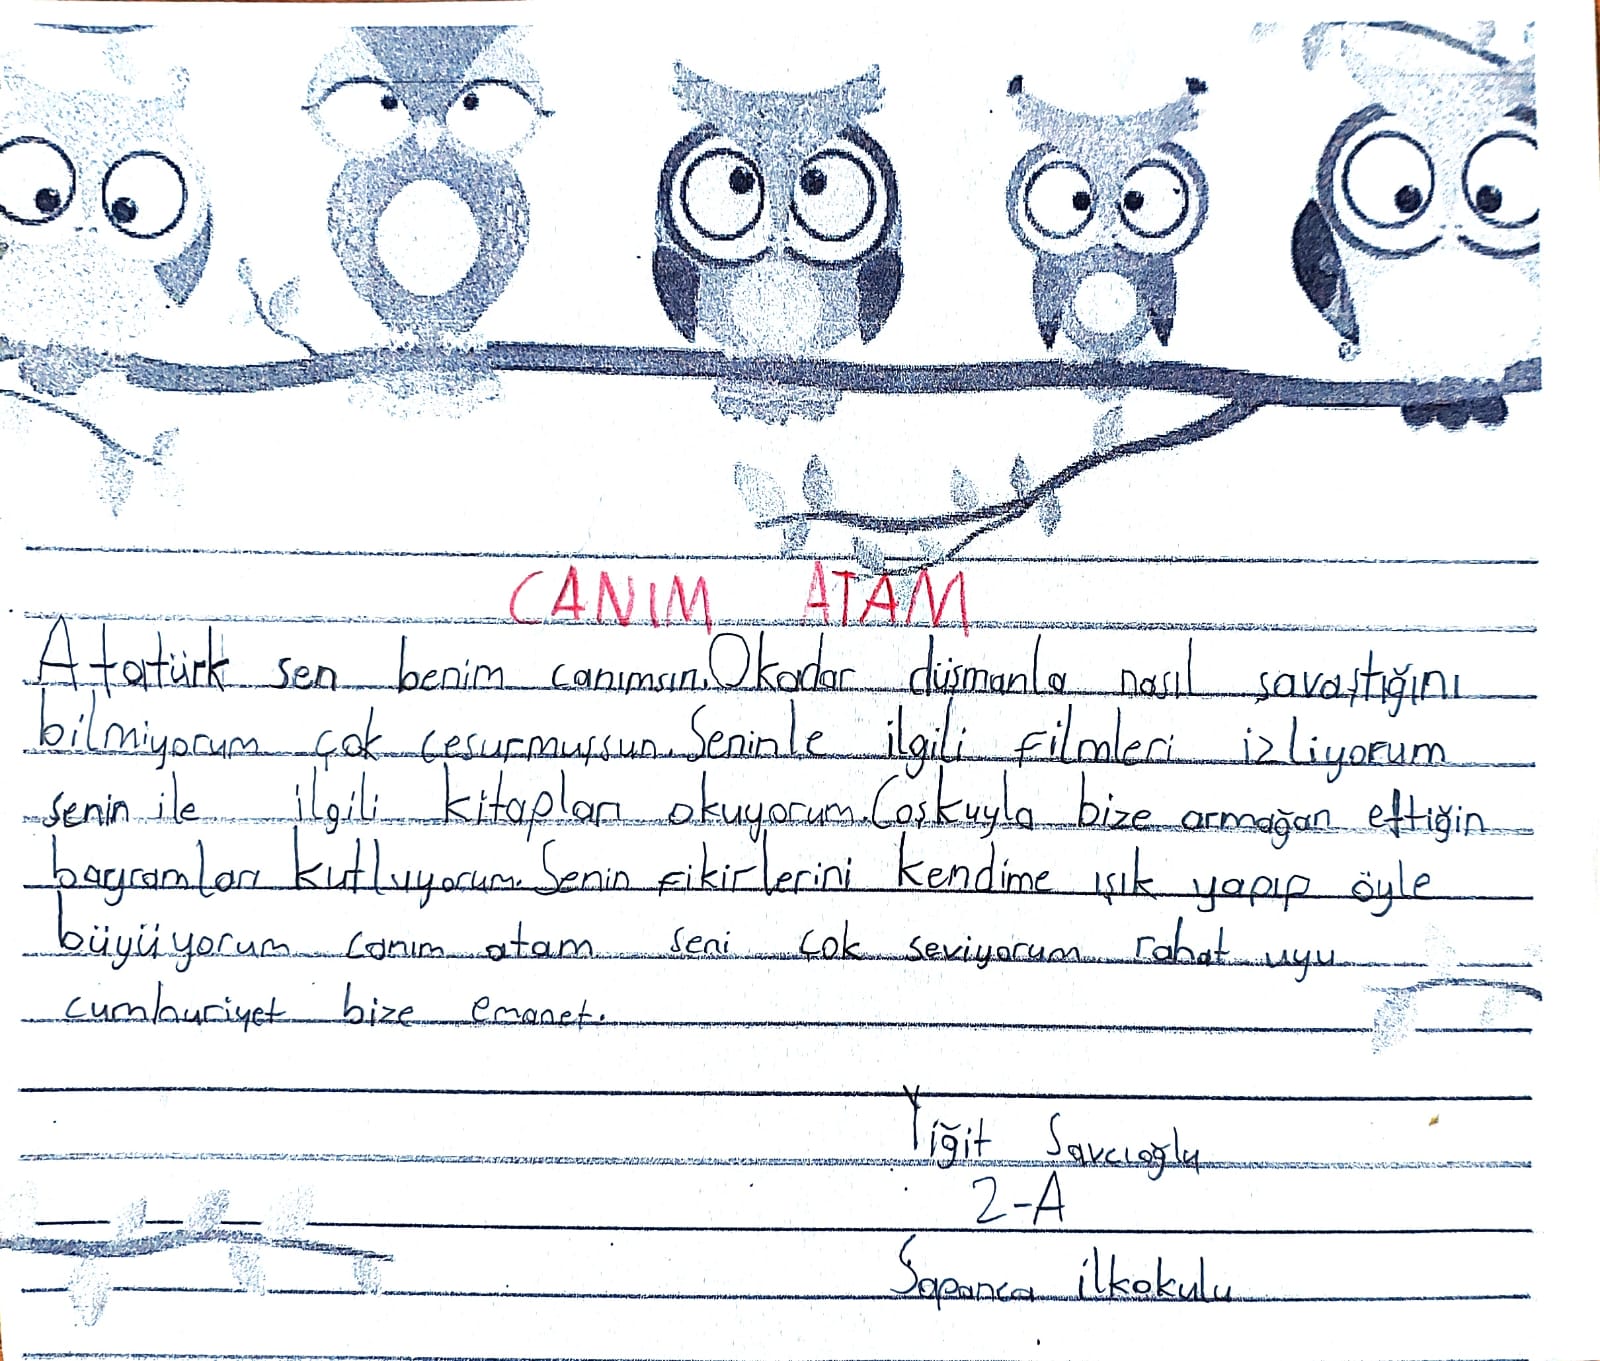 CANIM ATAM
Atatürk sen benim canımsın. Okadar düşmanla nasıl savaştığını
bilmiyorum çok cesurmuşsun. Seninle ilgili filmleri izliyorum
senin ile ilgili kitapları okuyorum. Coşkuyla bize armağan ettiğin
bayramları kutluyorum. Senin fikirlerini kendime ışık yapıp öyle
büyüyorum canım atam seni çok seviyorum rahat uyu
cumhuriyet bize emanet.
Yiğit Savcıoğlu
2-A
Sapanca ilkokulu